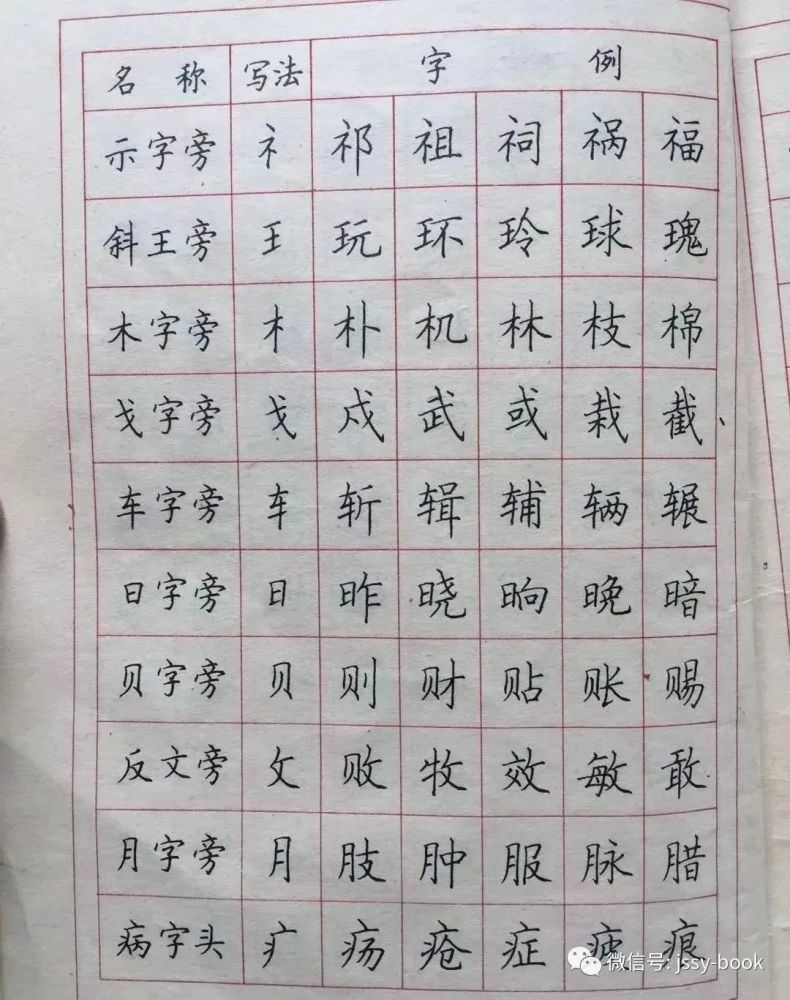 名称 写法 字例
示字旁 礻 祁 祖 祠 祸 福
斜王旁 王 玩 环 玲 球 瑰
木字旁 木 朴 机 林 枝 棉
戈字旁 戈 戍 武 或 栽 截
车字旁 车 斩 辑 辅 辆 辗
日字旁 日 昨 晓 晌 晚 暗
贝字旁 贝 则 财 贴 账 赐
反文旁 攵 败 牧 效 敏 敢
月字旁 月 肢 肿 服 脉 腊
病字头 疒 疡 疮 症 疲 痕
微信号: jssy-book